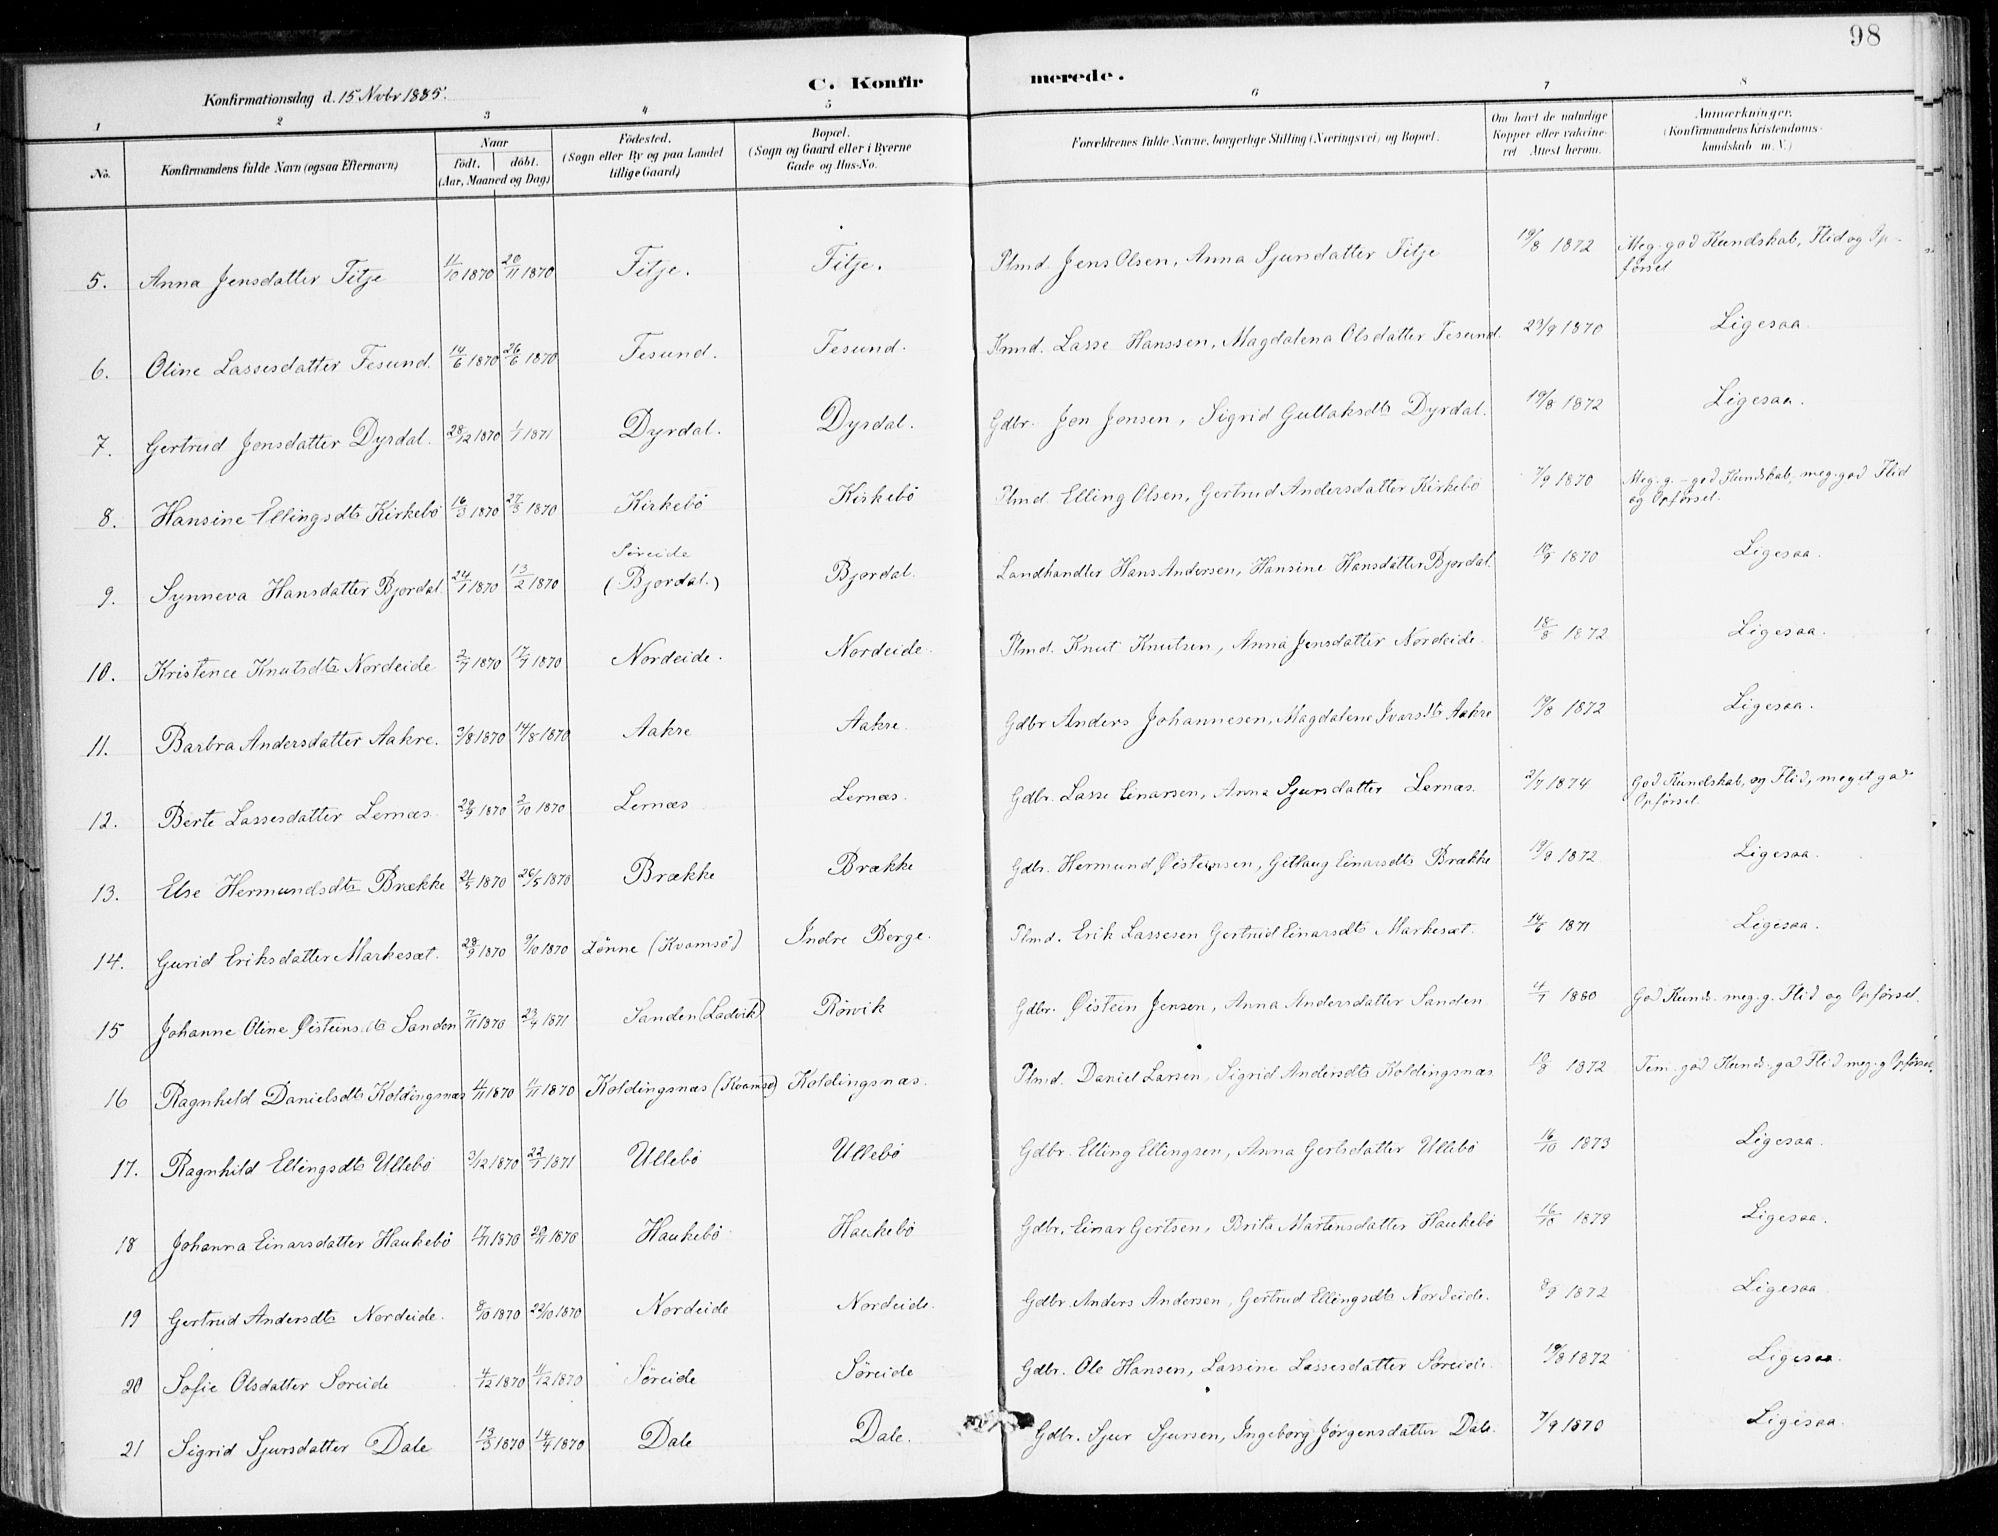 98
C. Konfirmerede.
Konfirmationsdag d. 15 Novbr 1885.
1 2 3 4 5 6 7 8
No. Konfirmandens fulde Navn (ogsaa Efternavn) Naar födt. döbt. (Aar, Maaned og Dag) Födested. (Sogn eller By og paa Landet tillige Gaard) Bopæl. (Sogn og Gaard eller i Byerne Gade og Hus-No. Forældrenes fulde Navne, borgerlige Stilling (Næringsvei) og Bopæl. Om havt de naturlige Kopper eller vakcineret Attest herom. Anmærkninger. (Konfirmandens Kristendomskundskab m. V.)
5. Anna Jensdatter Fitje 11/10 1870 20/11 1870 Fitje. Fitje. Plmd. Jens Olsen, Anna Sjursdatter Fitje 19/8 1872 Meg. god Kundskab, Flid og Opførsel
6. Oline Lassesdatter Fesund. 14/6 1870 26/6 1870 Fesund. Fesund. Knmd. Lasse Hanssen, Magdalena Olsdatter Fesund. 23/9 1870 Ligesaa.
7. Gertrud Jonsdatter Dyrdal. 28/12 1870 1/1 1871 Dyrdal. Dyrdal. Gdbr. Jon Jonsen, Sigrid Gullaksdtr Dyrdal. 19/8 1872 Ligesaa.
8. Hansine Ellingsdtr Kirkebö 16/3 1870 27/3 1870 Kirkebö Kirkebö Plmd. Elling Olsen, Gertrud Andersdatter Kirkebö 7/9 1870 Meg. g. - god Kundskab, meg. god Flid og Opførsel.
9. Synneva Hansdatter Bjordal. 24/1 1870 13/2 1870 Søreide (Bjordal.) Bjordal. Landhandler Hans Andersen, Hansine Hansdatter Bjordal. 10/9 1870 Ligesaa.
10. Kristence Knutsdtr Nordeide 2/7 1870 17/7 1870 Nordeide. Nordeide. Plmd. Knut Knutsen, Anna Jensdatter Nordeide. 18/8 1872 Ligesaa.
11. Barbra Andersdatter Aakre. 3/8 1870 14/8 1870 Aakre Aakre. Gdbr Anders Johannesen, Magdalene Ivarsdtr Aakre 19/8 1872 Ligesaa.
12. Berte Lassesdatter Lernæs. 29/9 1870 2/10 1870 Lernæs Lernæs. Gdbr. Lasse Einarsen, Anna Sjursdatter Lernæs. 2/7 1874 God Kundskab, og Flid, meget god Opførsel.
13. Else Hermundsdtr Brække 21/5 1870 26/5 1870 Brække Brække Gdbr. Hermund Øisteinsen, Gjetlaug Einarsdtr Brække 19/8 1872 Ligesaa.
14. Gurid Eriksdatter Markesæt. 28/9 1870 9/10 1870 Lönne (Kvamsö) Indre Berge. Plmd. Erik Lassesen Gertrud Einarsdtr Markesæt. 14/6 1871 Ligesaa.
15 Johanne Oline Øisteinsdtr Sanden 7/11 1870 23/4 1871 Sanden (Ladvik) Rörvik Gdbr. Øistein Jensen, Anna Andersdatter Sanden 4/1 1880 God Kunds. meg. g. Flid og Opførsel.
16 Ragnhild Danielsdtr Koldingsnæs 4/11 1870 11/11 1870 Koldingsnæs (Kvamsö) Koldingsnæs. Plmd. Daniel Larsen, Sigrid Andersdtr Koldingsnæs 19/8 1872 Tem. god Kunds. god Flid meg. g Opførsel.
17. Ragnhild Ellingsdtr Ullebö 3/12 1870 22/1 1871 Ullebö Ullebö Gdbr. Elling Ellingsen, Anna Gertsdatter Ullebö 16/10 1873 Ligesaa.
18 Johanna Einarsdatter Haukebö 17/11 1870 20/11 1870 Haukebö Haukebö Gdbr. Einar Gertsen, Brita Martensdatter Haukebö 16/10 1879 Ligesaa.
19 Gertrud Andersdtr Nordeide. 8/10 1870 22/10 1870 Nordeide Nordeide. Gdbr. Anders Andersen, Gertrud Ellingsdtr Nordeide. 8/9 1872 Ligesaa
20 Sofie Olsdatter Søreide 4/12 1870 11/12 1870 Söreide Söreide Gdbr. Ole Hansen, Lassine Lassesdatter Søreide. 19/8 1872 Ligesaa.
21 Sigrid Sjursdatter Dale 13/3 1870 14/4 1870 Dale Dale. Gdbr. Sjur Sjursen, Ingeborg Jørgensdatter Dale. 7/9 1870 Ligesaa.